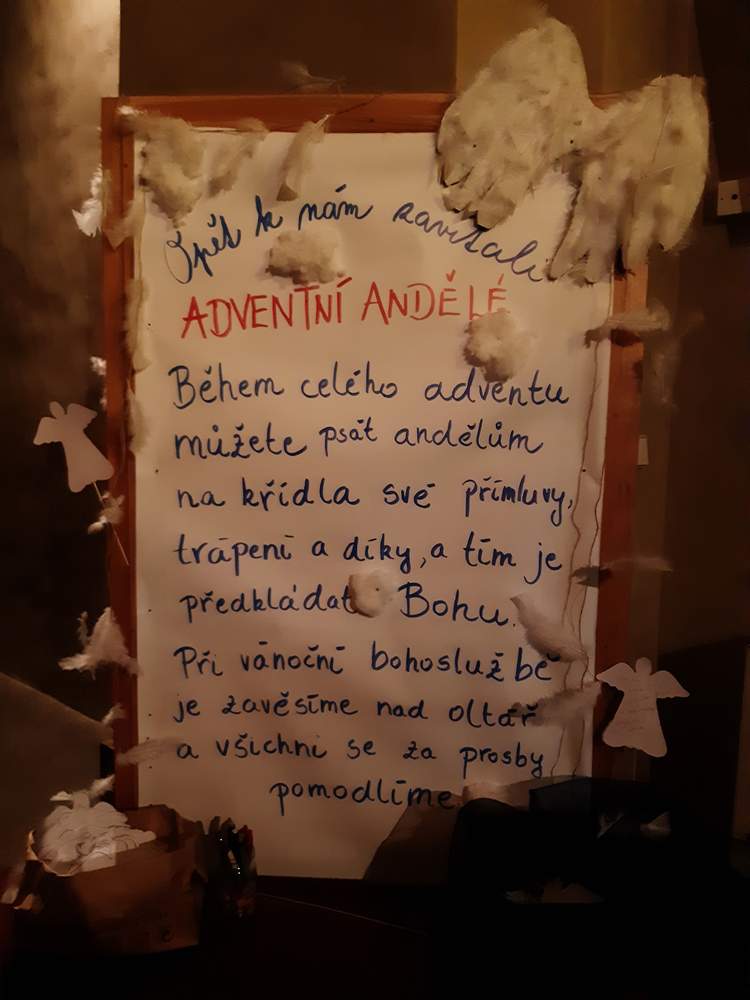 Opět k nám zavítali
ADVENTNÍ ANDĚLÉ
Během celého adventu
můžete psát andělům
na křídla své přímluvy,
trápení a díky, a tím je
předkládat Bohu.
Při vánoční bohoslužbě
je zavěsíme nad oltář
a všichni se za prosby
pomodlíme.